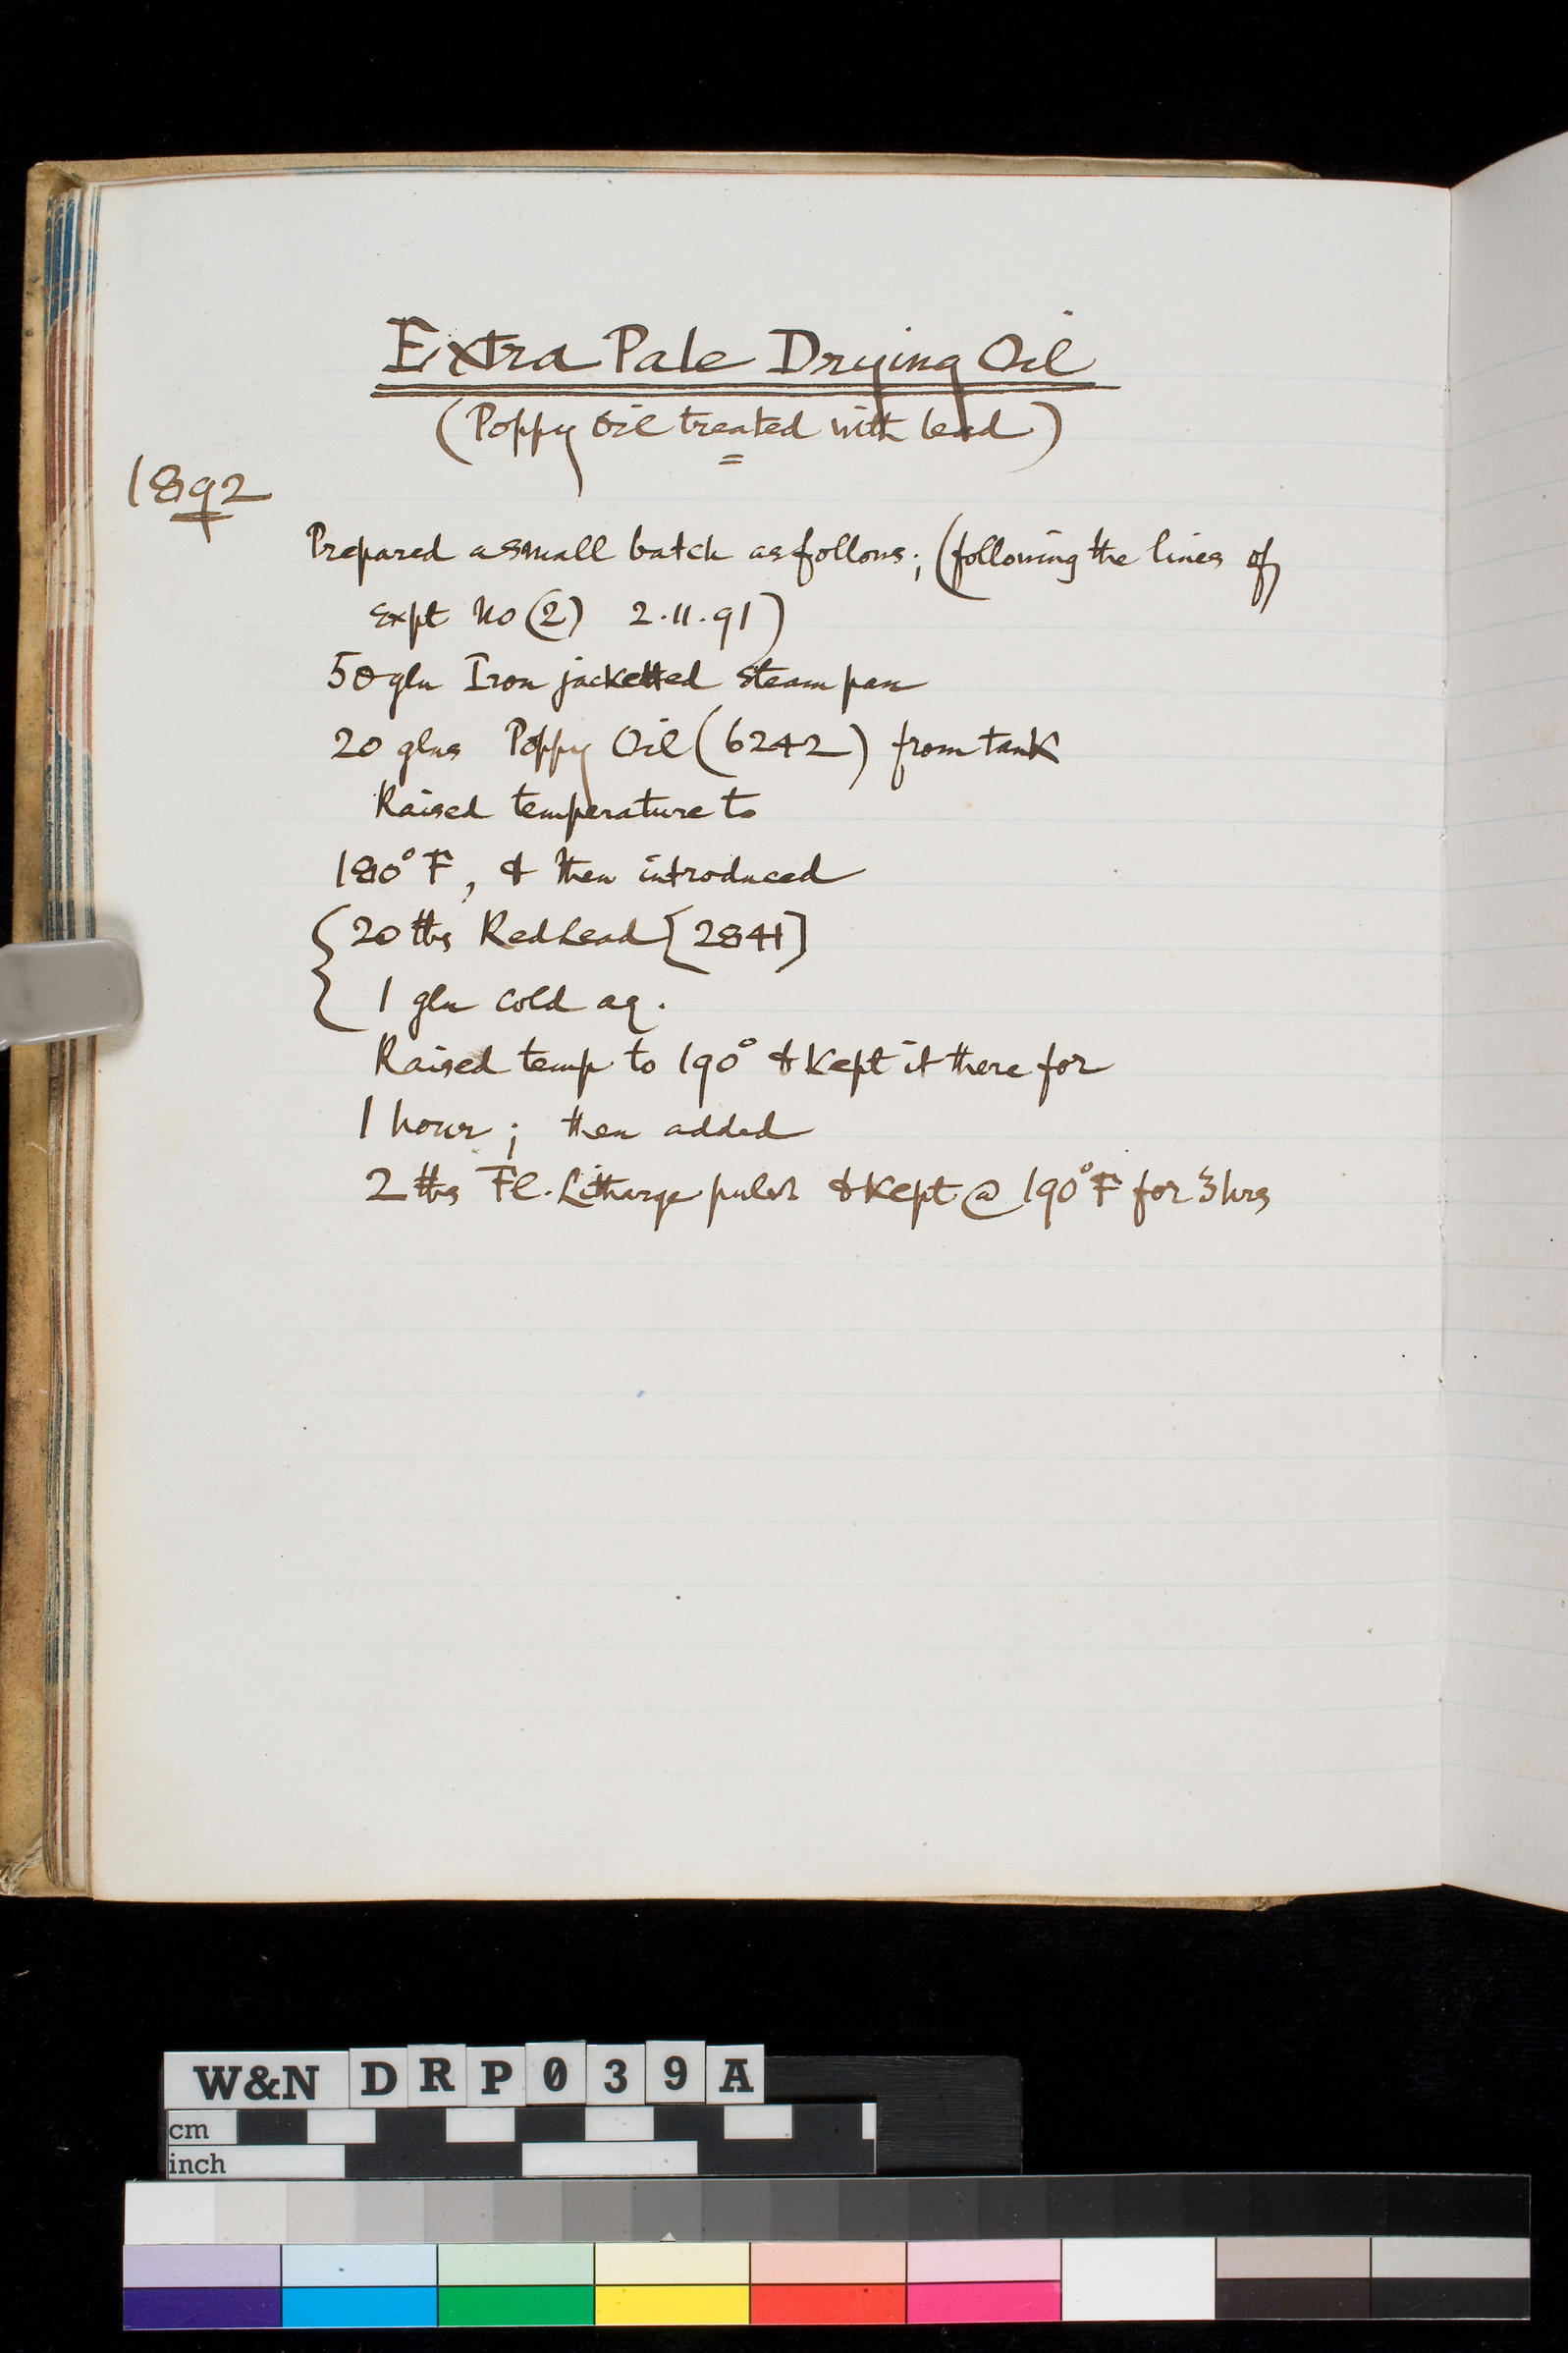 Extra Pale Drying Oil
(Poppy Oil treated with lead)
1892
Prepared a small batch as follows; (following the lines of
Expt No (2) 2.11.91)
50 gln Iron jacketted steam pan
20 glns Poppy Oil (6242) from tank
Raised temperature to
180° F, & then introduced
20 lbs Red Lead [2841]
1 gln cold aq.
Raised temp to 190° & kept it there for
1 hour; then added
2 lbs Fl. Litharge pulv & kept @ 190° F for 3 hrs
W&N DRP039A
cm
inch